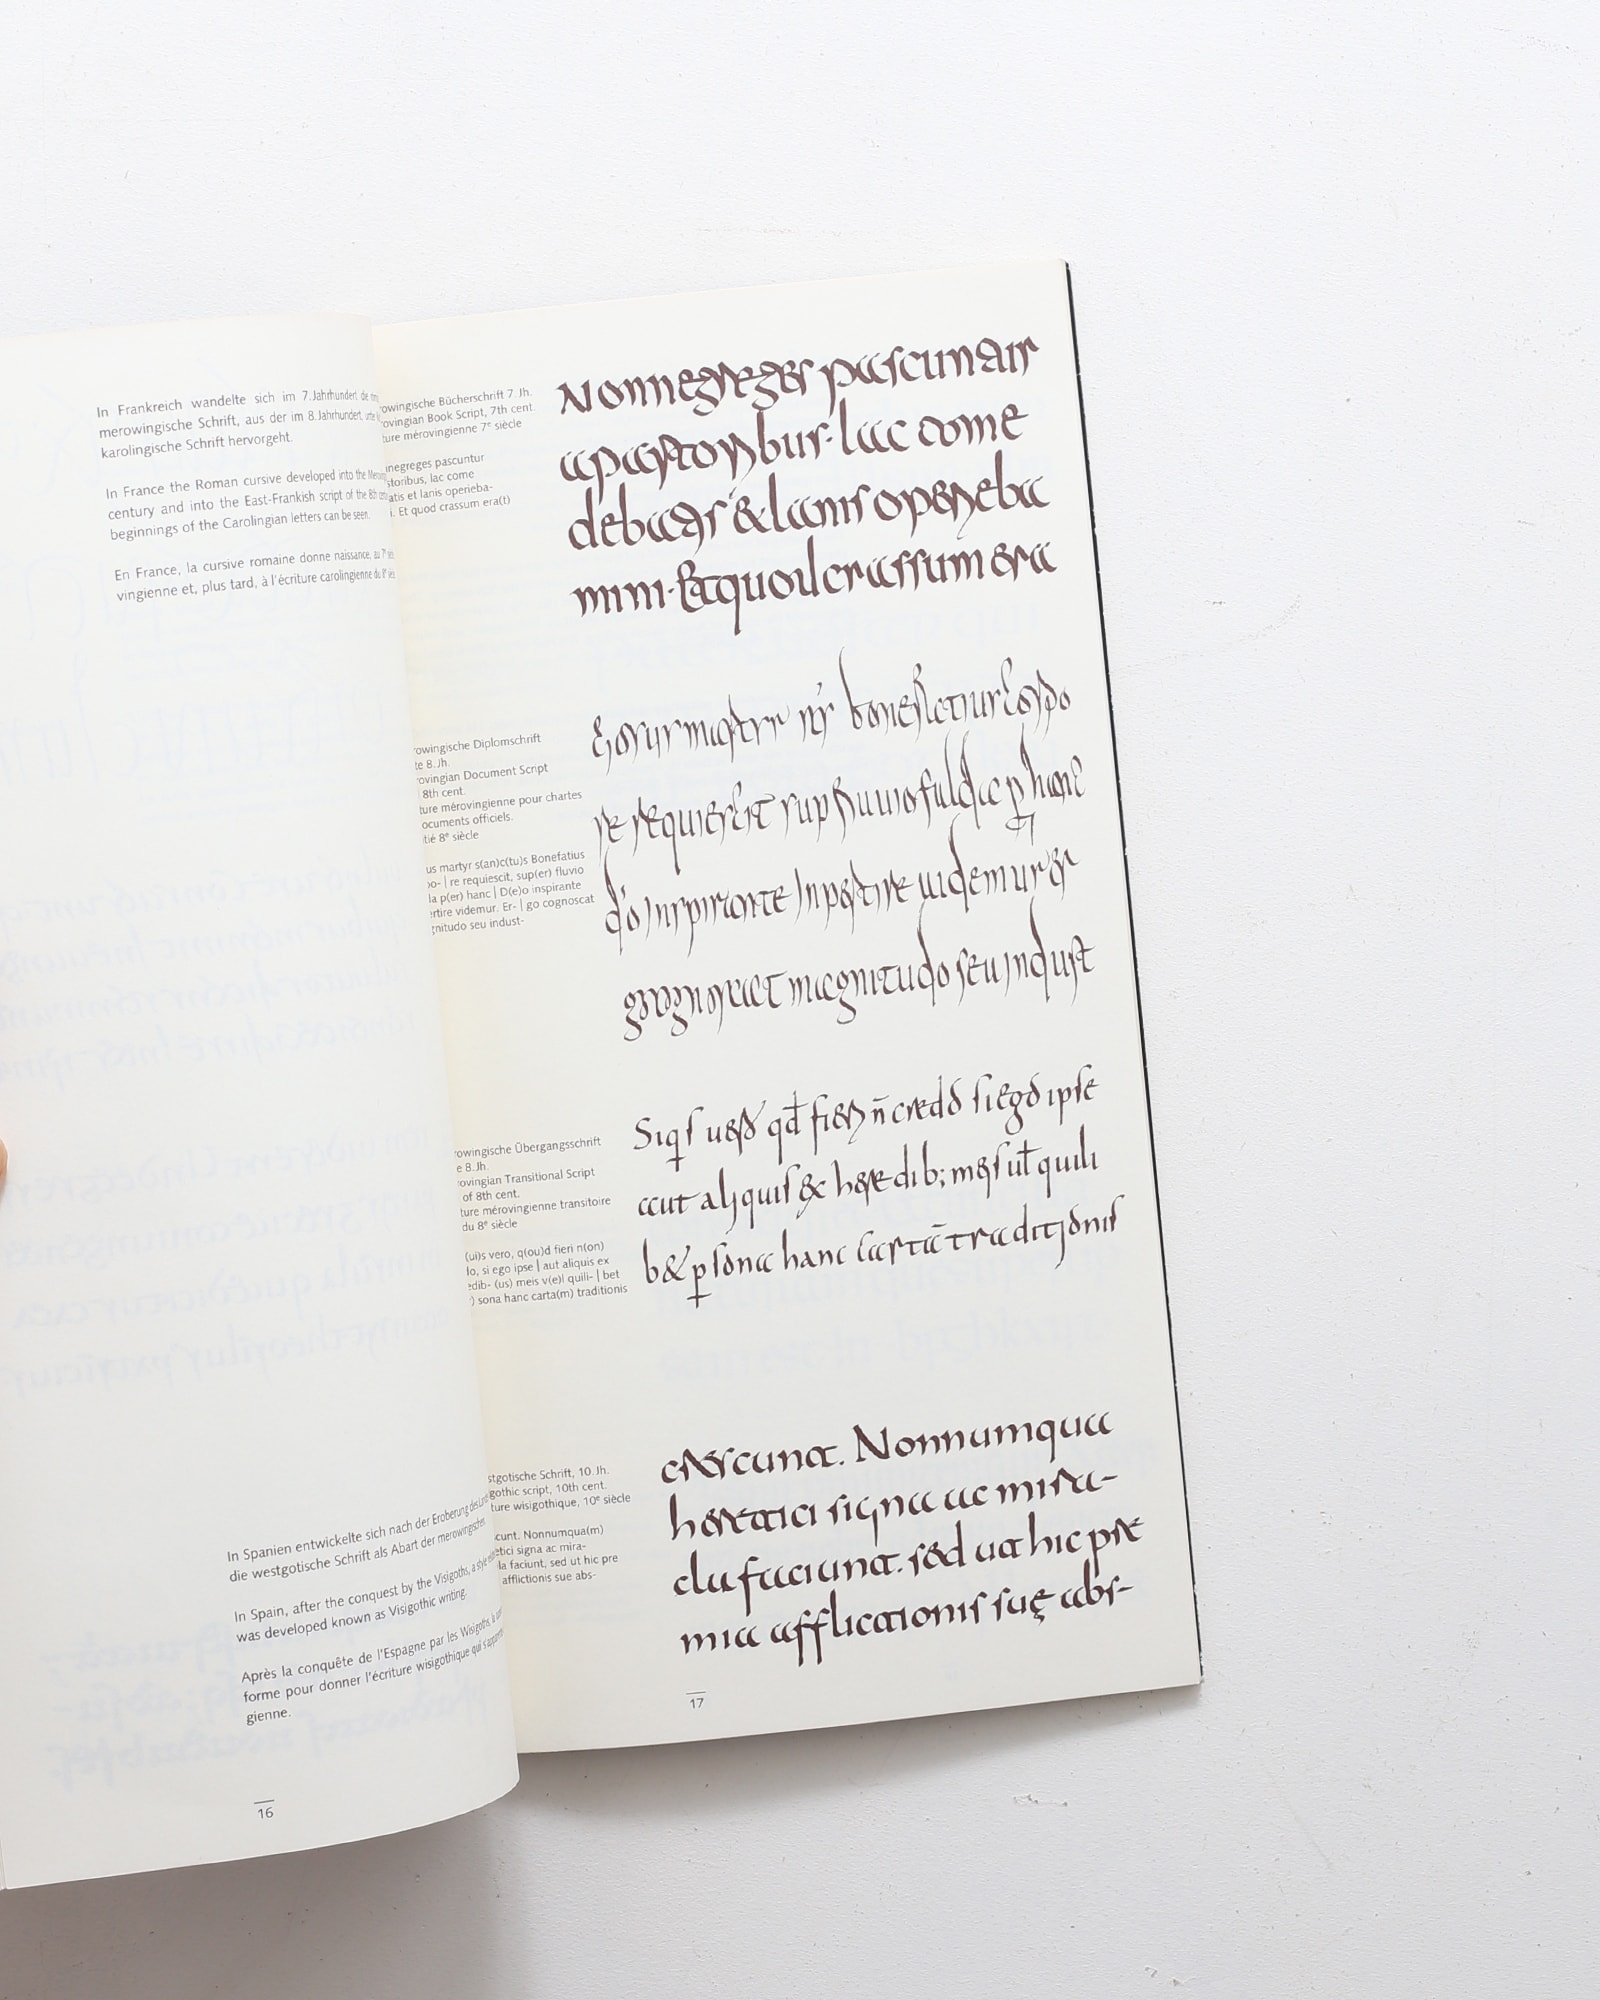 In Frankreich wandelte sich im 7. Jahrhundert die
merowingische Schrift, aus der im 8. Jahrhundert
karolingische Schrift hervorgeht.
In France the Roman cursive developed into the
century and into the East-Frankish script of the 8th
beginnings of the Carolingian letters can be seen.
En France, la cursive romaine donne naissance, au 7e
vingienne et, plus tard, à l'écriture carolingienne du 8e
In Spanien entwickelte sich nach der Eroberung des
die westgotische Schrift als Abart der merowingischen
In Spain, after the conquest by the Visigoths, a style
was developed known as Visigothic writing.
Après la conquête de l'Espagne par les Wisigoths, la
forme pour donner l'écriture wisigothique qui
gienne.
16
owingische Bücherschrift 7. Jh.
ovingian Book Script, 7th cent.
ture mérovingienne 7e siècle
negreges pascuntur
storibus, lac come
atis et lanis operieba-
i. Et quod crassum era(t)
Nonnegreges pascuntur
a pastoribus. lac come
debatis & lanis operieba
mini. Et quod crassum era
owingische Diplomschrift
te 8. Jh.
ovingian Document Script
8th cent.
ture mérovingienne pour chartes
ocuments officiels.
itié 8e siècle
us martyr s(an)c(tu)s Bonefatius
oo- | re requiescit, sup(er) fluvio
la p(er) hanc | D(e)o inspirante
ertire videmur. Er- | go cognoscat
gnitudo seu indust-
re requiescit super fluuio fulda p hanc
do inspirante inpertire uidemur er
go cognoscat magnitudo seu indust
rowingische Übergangsschrift
e 8. Jh.
rovingian Transitional Script
of 8th cent.
ture mérovingienne transitoire
du 8e siècle
(ui)s vero, q(ou)d fieri n(on)
lo, si ego ipse | aut aliquis ex
edib- (us) meis v(e)l quili- | bet
) sona hanc carta(m) traditionis
Siqs uero qd fieri n̄ credo si ego ipse
aut aliquis ex heredib; meis ul quili
b& p sona hanc cartā traditionis
stgotische Schrift, 10. Jh.
gothic script, 10th cent.
ture wisigothique, 10e siècle
cunt. Nonnumqua(m)
etici signa ac mira-
la faciunt, sed ut hic pre
afflictionis sue abs-
crescunt. Nonnumqua
heretici signa ac mira-
cla faciunt. sed ut hic pre
mia afflictionis suę abs-
17